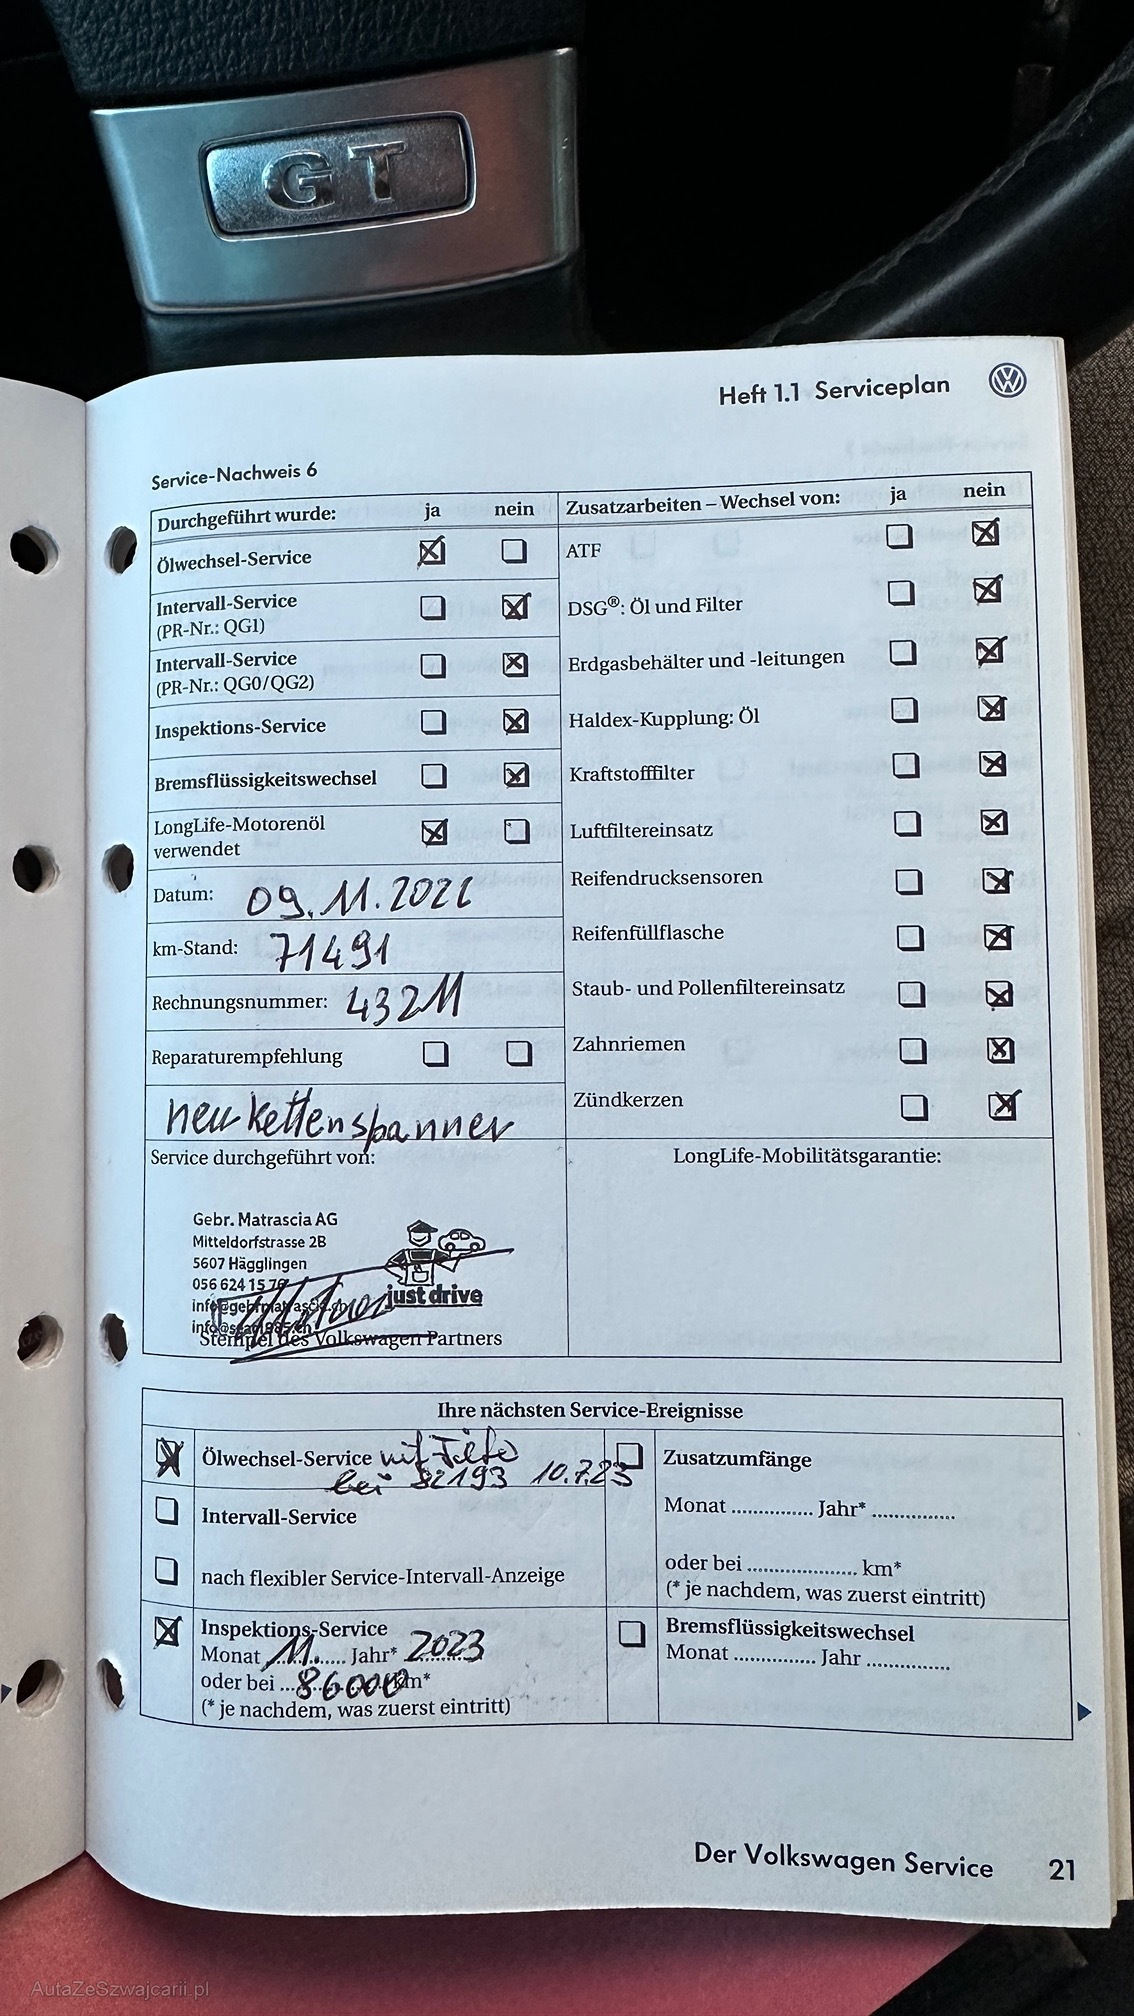 GT
Heft 1.1 Serviceplan
Service-Nachweis 6
Durchgeführt wurde: ja nein
Ölwechsel-Service
Intervall-Service
(PR-Nr.: QG1)
Intervall-Service
(PR-Nr.: QG0/QG2)
Inspektions-Service
Bremsflüssigkeitswechsel
LongLife-Motorenöl
verwendet
Datum: 09.11.2022
km-Stand: 71491
Rechnungsnummer: 43211
Reparaturempfehlung
neu kettenspanner
Zusatzarbeiten – Wechsel von: ja nein
ATF
DSG®: Öl und Filter
Erdgasbehälter und -leitungen
Haldex-Kupplung: Öl
Kraftstofffilter
Luftfiltereinsatz
Reifendrucksensoren
Reifenfüllflasche
Staub- und Pollenfiltereinsatz
Zahnriemen
Zündkerzen
Service durchgeführt von:
Gebr. Matrascia AG
Mitteldorfstrasse 2B
5607 Hägglingen
056 624 15 76
just drive
Stempel des Volkswagen Partners
LongLife-Mobilitätsgarantie:
Ihre nächsten Service-Ereignisse
Ölwechsel-Service mit
bei 82193 10.7.23
Intervall-Service
nach flexibler Service-Intervall-Anzeige
Inspektions-Service
Monat 11. Jahr* 2023
oder bei 86000 km*
(* je nachdem, was zuerst eintritt)
Zusatzumfänge
Monat ............... Jahr* ...............
oder bei .................... km*
(* je nachdem, was zuerst eintritt)
Bremsflüssigkeitswechsel
Monat ............... Jahr ...............
Der Volkswagen Service 21
AutaZeSzwajcarii.pl